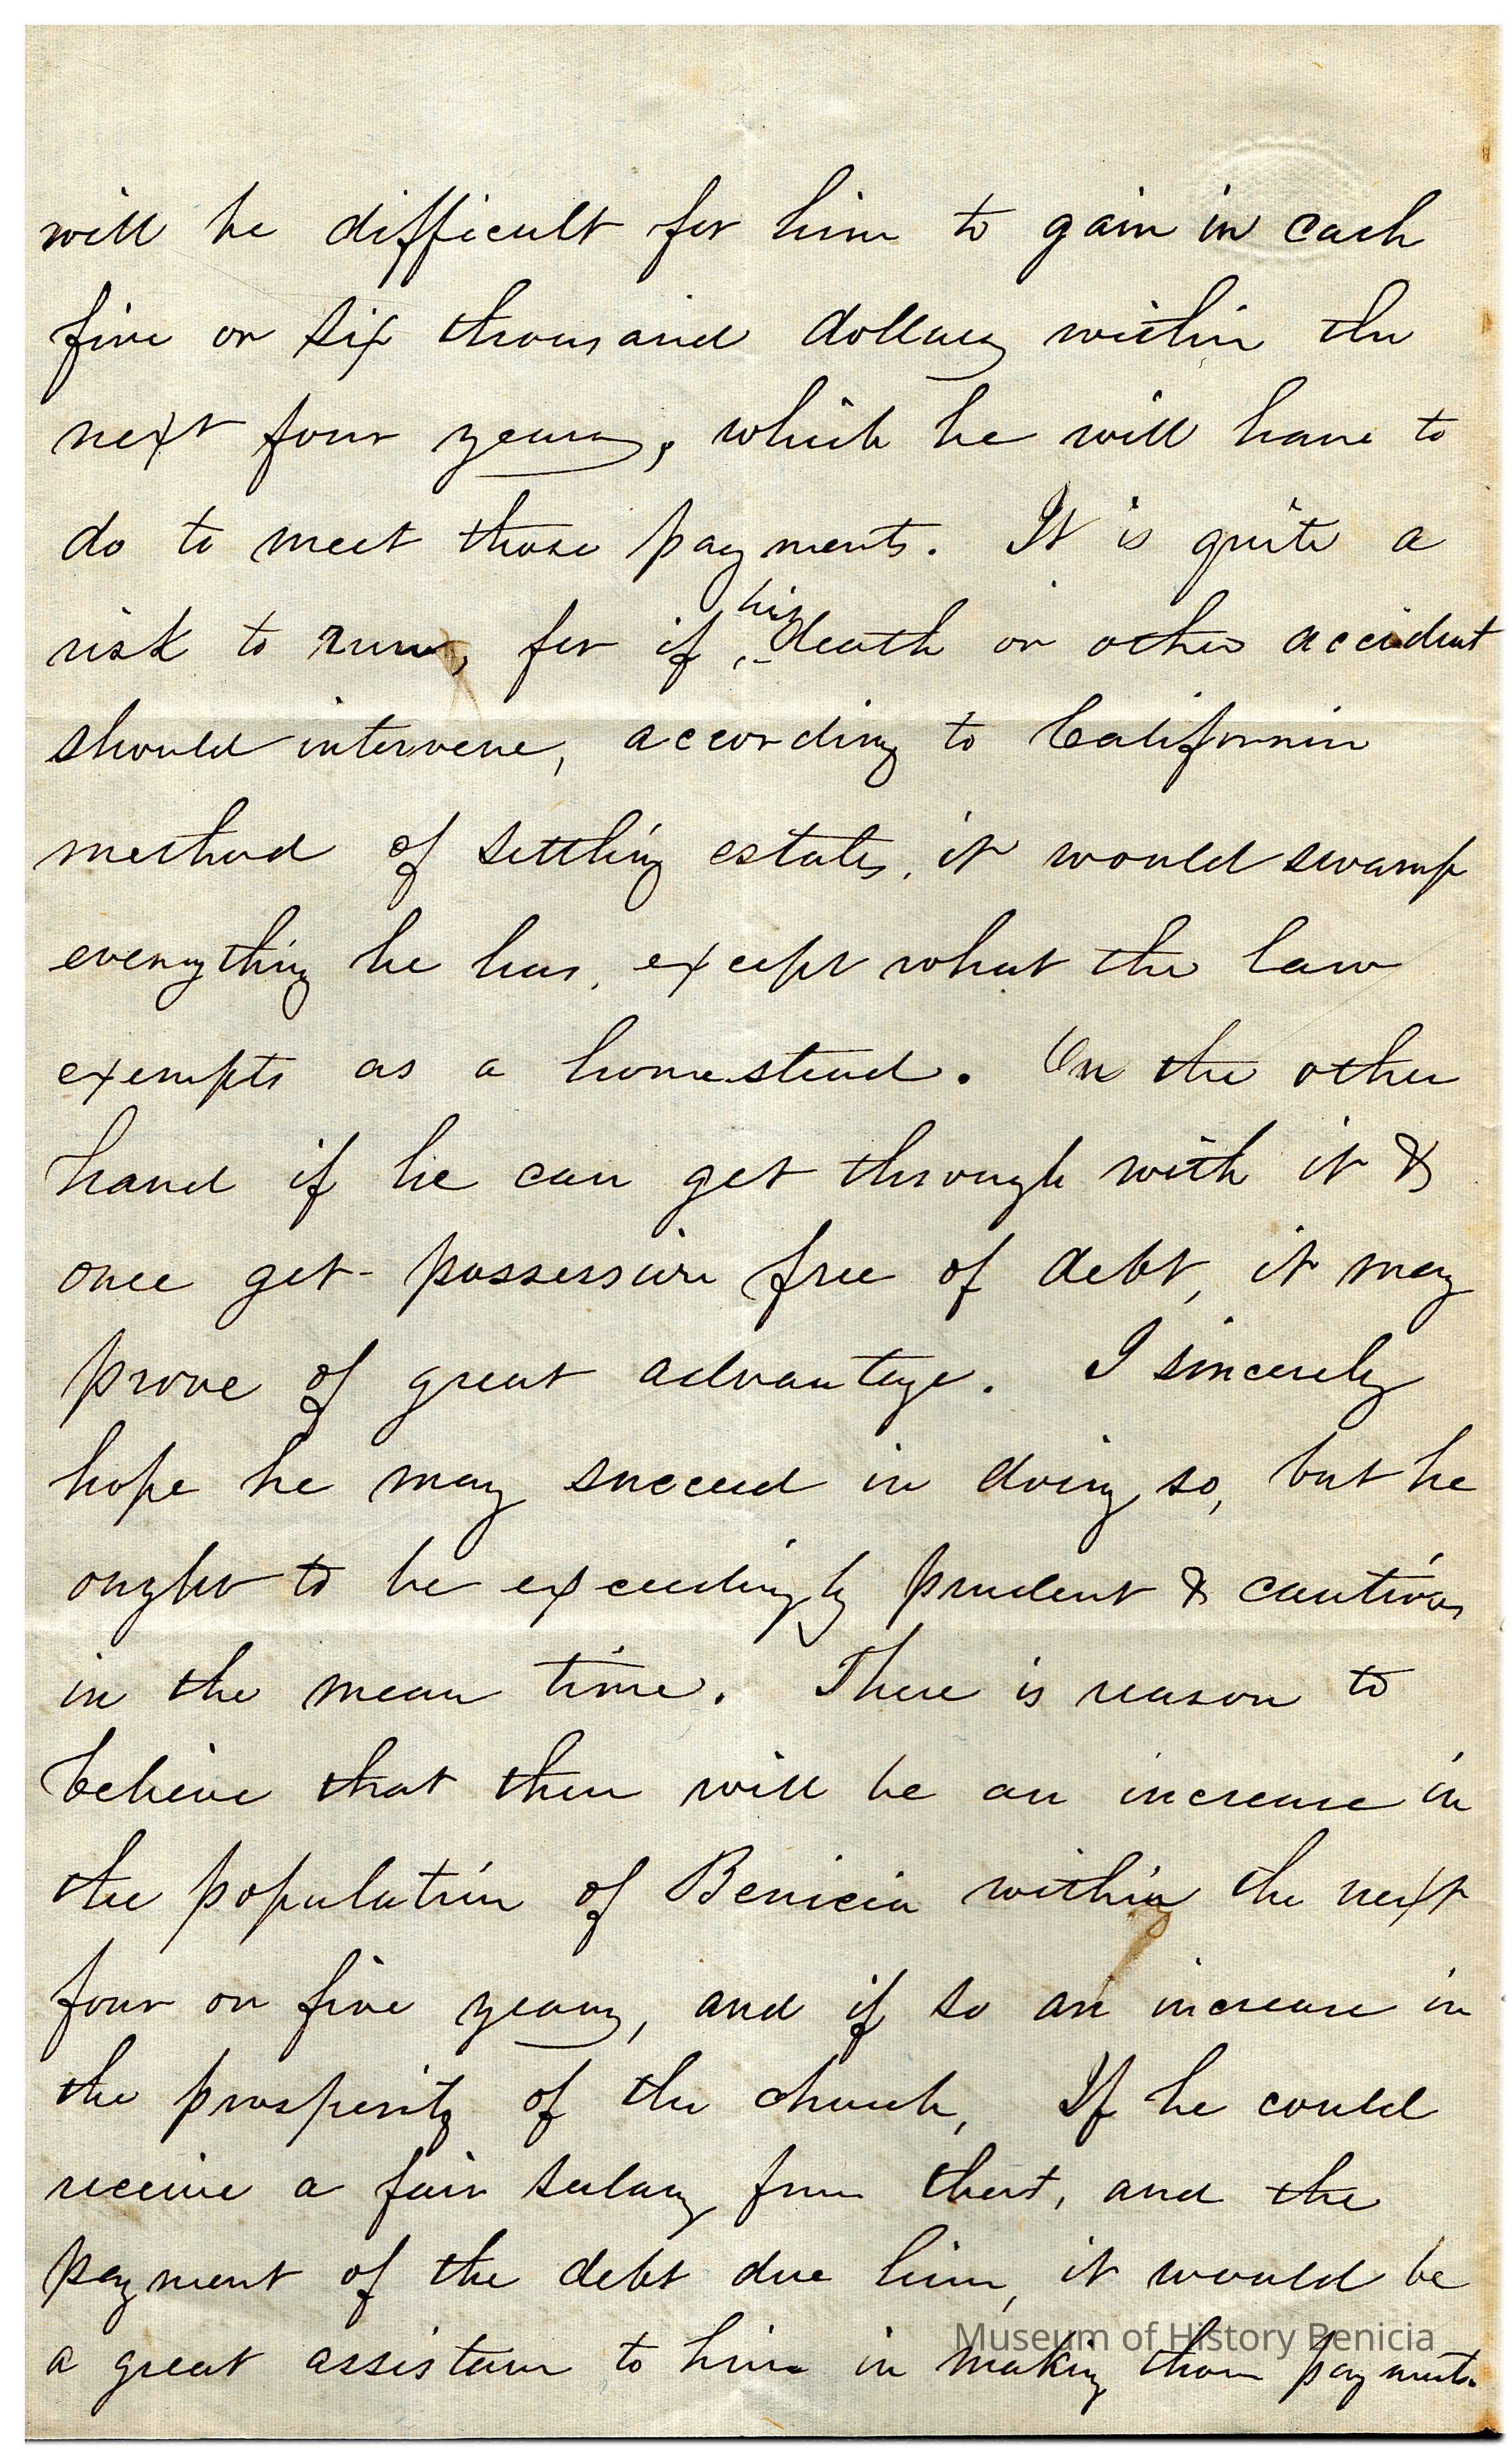 will be difficult for him to gain in cash
five or six thousand dollars within the
next four years, which he will have to
do to meet those payments. It is quite a
risk to run, for if his death or other accident
should intervene, according to California
method of settling estates, it would swamp
everything he has, except what the law
exempts as a homestead. On the other
hand if he can get through with it &
once get possession free of debt, it may
prove of great advantage. I sincerely
hope he may succeed in doing so, but he
ought to be exceedingly prudent & cautious
in the mean time. There is reason to
believe that there will be an increase in
the population of Benicia within the next
four or five years, and if so an increase in
the prosperity of the church, If he could
receive a fair salary from that, and the
payment of the debt due him, it would be
a great assistance to him in making those payments.
Museum of History Benicia